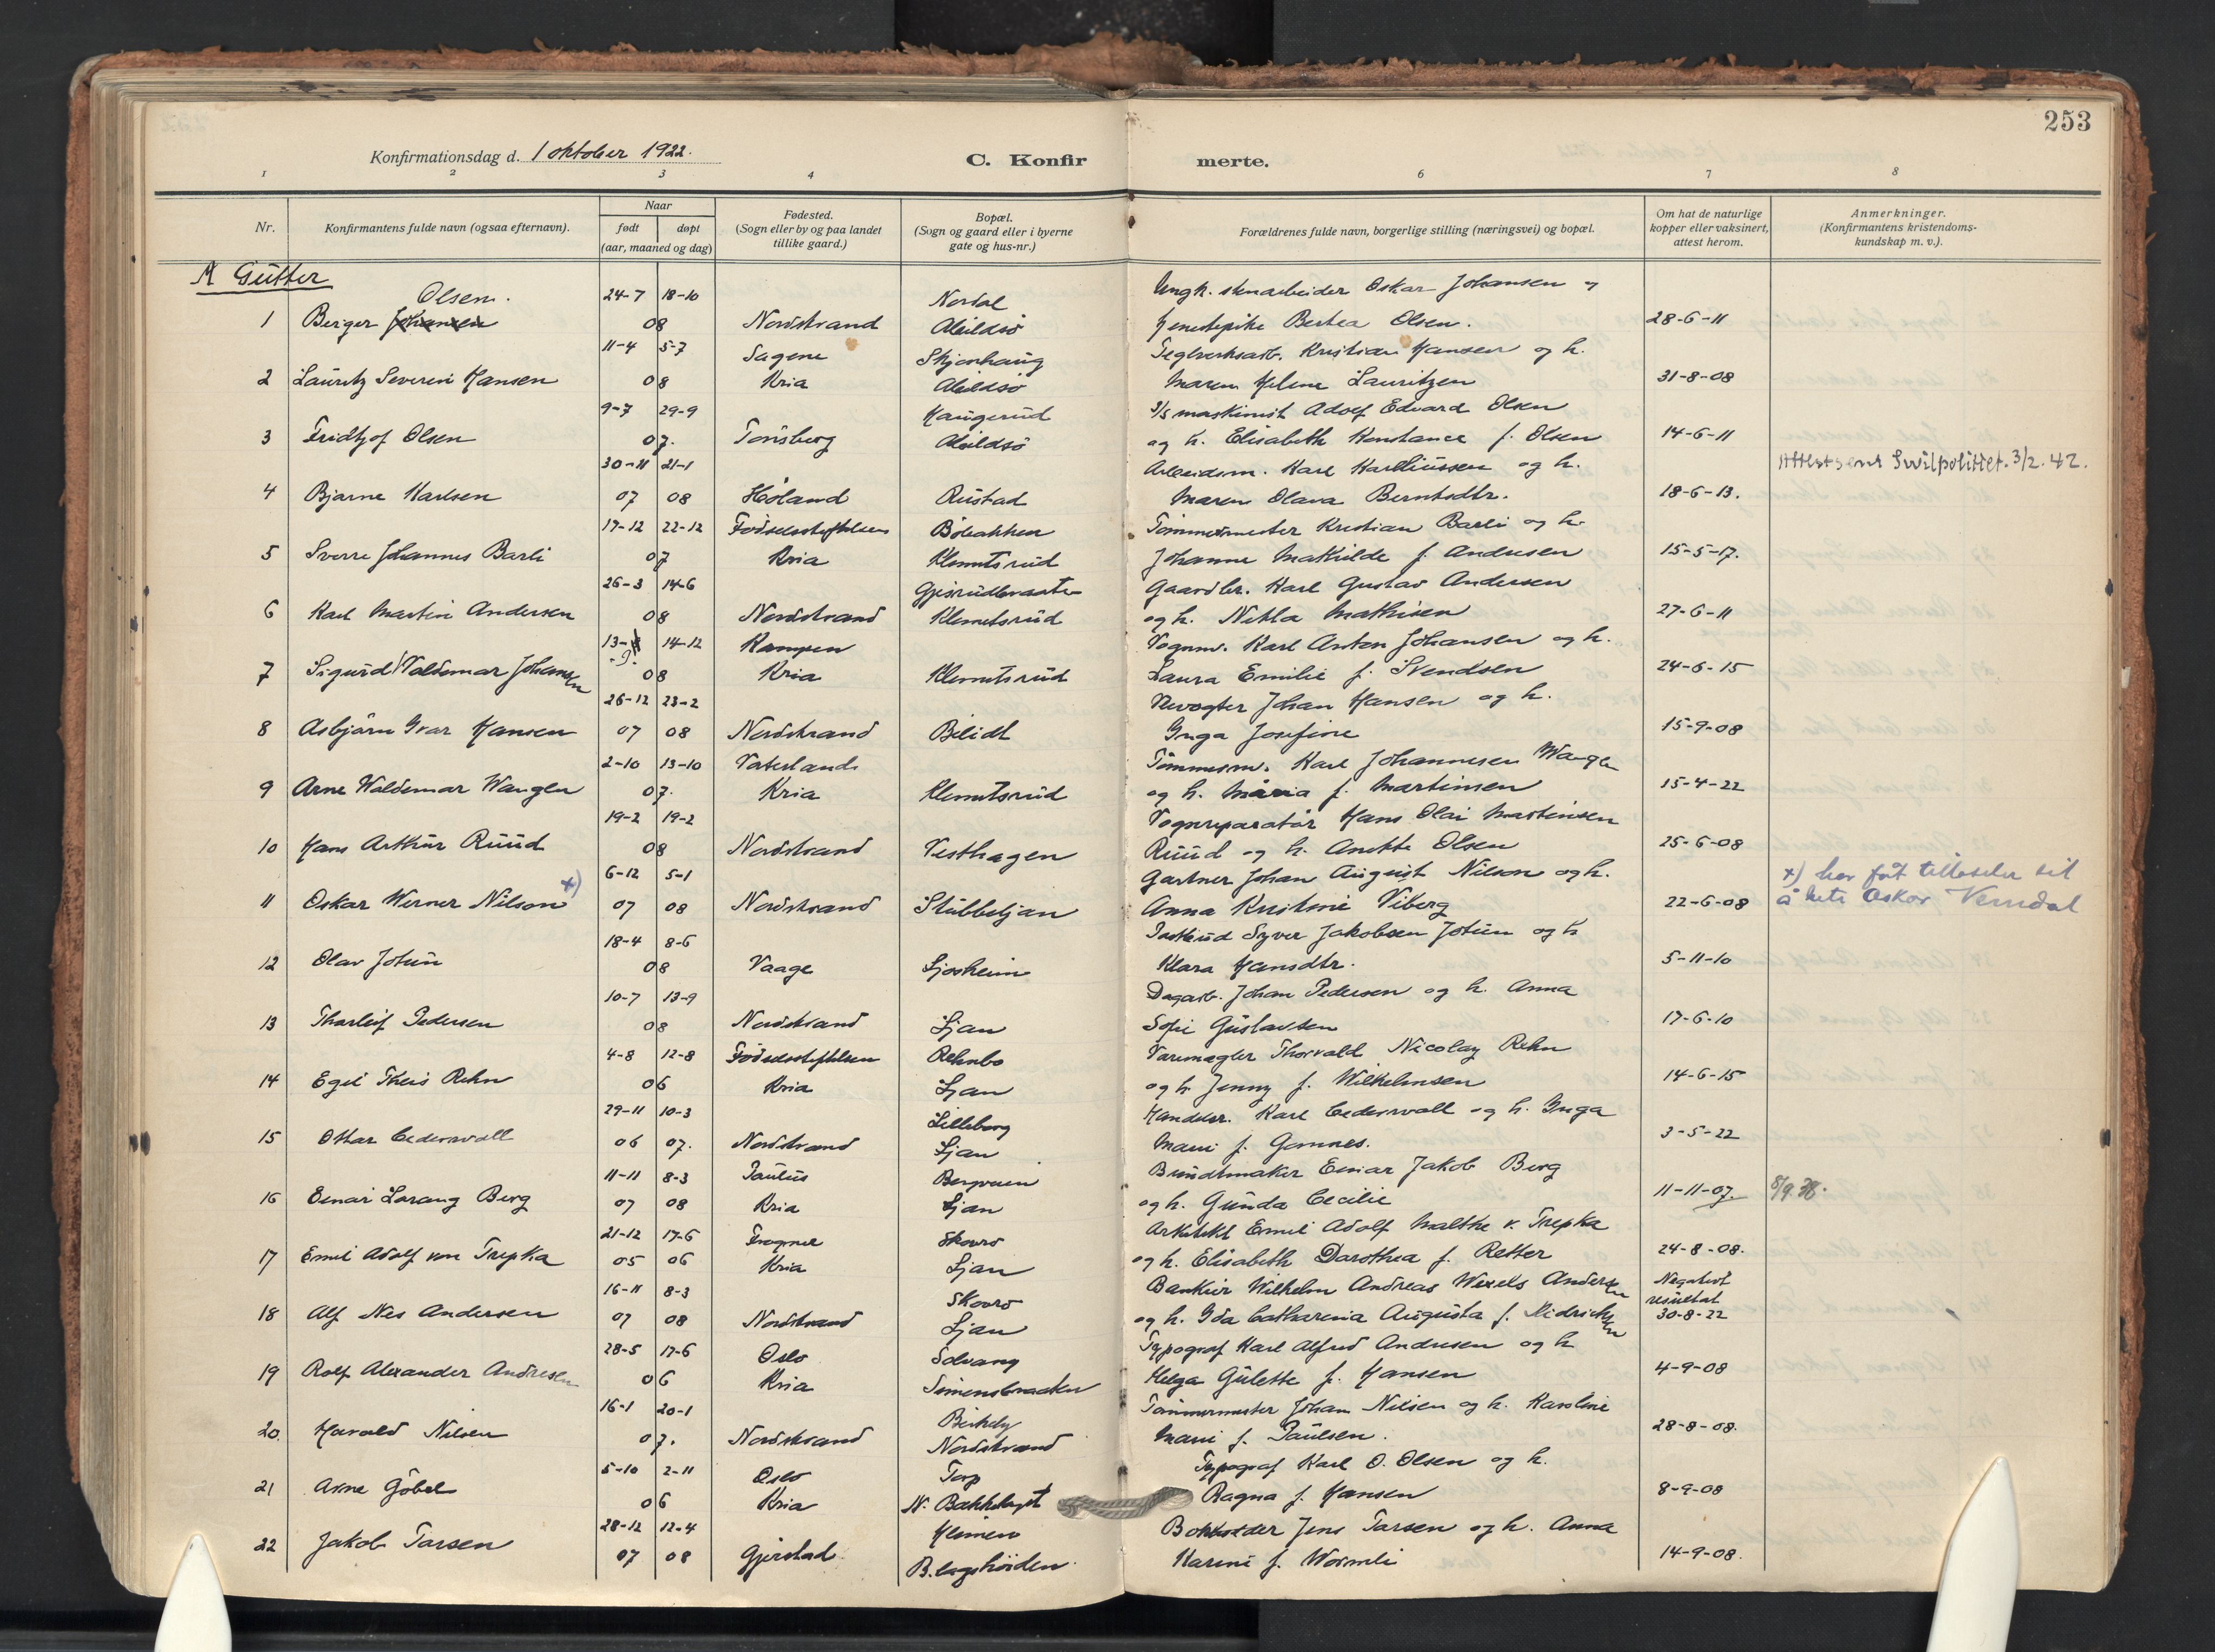 253
Konfirmationsdag d. 1 oktober 1922.
C. Konfirmerte.
1 2 3 4 6 7 8
Nr.
Konfirmantens fulde navn (ogsaa efternavn).
Naar
født døpt
(aar, maaned og dag)
Fødested.
(Sogn eller by og paa landet
tillike gaard.)
Bopæl.
(Sogn og gaard eller i byerne
gate og hus-nr.)
Forældrenes fulde navn, borgerlige stilling (næringsvei) og bopæl.
Om hat de naturlige
kopper eller vaksinert,
attest herom.
Anmerkninger.
(Konfirmantens kristendoms-
kundskap m. v.).
A Gutter
Olsen. 24-7 18-10 Nordal Ungk. stenarbeider Oskar Johansen og
1 Berger Johansen 08 Nordstrand Abildsø tjenestepike Bertea Olsen. 28-6-11
11-4 5-7 Sagene Skjønhaug Teglverksarb. Kristian Hansen og h.
2 Lauritz Severin Hansen 08 Kria Abildsø Maren Helene Lauritzen 31-8-08
9-7 29-9 Haugerud maskinist Adolf Edvard Olsen
3 Fridtjof Olsen 07. Tønsberg Abildsø og h. Elisabeth Konstance f. Olsen 14-6-11
30-11 21-1 Arbeidsm. Karl Karlliussen og h. Attest sent Sivilpolitiet. 3/2. 42.
4 Bjarne Karlsen 07 08 Høland Rustad Maren Olava Berntsdtr. 18-6-13.
17-12 22-12 Fødselsstiftelsen Bøleakken Tømmermester Kristian Barli og h.
5 Sverre Johannes Barli 07 Kria Klemetsrud Johanne Mathilde f. Andresen 15-5-17.
26-3 14-6 Gjersrudbraaten Gaardbr. Karl Gustav Andersen
6 Karl Martin Andersen 08 Nordstrand Klemetsrud og h. Mathisen 27-6-11
13- -9. 14-12 Kampen Vognm. Karl Anton Johansen og h.
7 Sigurd Valdemar Johansen 08 Kria Klemetsrud Laura Emilie f. Svendsen 24-6-15
26-12 23-2 Johan Hansen og h.
8 Asbjørn Ivar Hansen 07 08 Nordstrand Bilidt Inga Josefine 15-9-08
2-10 13-10 Vaterlands Tømmerm. Karl Johannesen Wangen
9 Arne Waldemar Wangen 07. Kria Klemetsrud og h. Maria f. Martinsen 15-4-22
19-2 19-2 Vognreparatør Hans Olai Martinsen
10 Hans Arthur Ruud 08 Nordstrand Vesthagen Ruud og h. Anette Olsen 25-6-08
6-12 5-1 Gartner Johan August Nilson og h. x) har fåt tillatelse til
11 Oskar Werner Nilson x) 07 08 Nordstrand Stubbeljan Anna Kristine Viberg 22-6-08 å hete Oskar Verndal
18-4 8-6 Postbud Syver Jakobsen Jotun og h
12 Olav Jotun 08 Vaage Ljosheim Klara Hansdtr. 5-11-10
10-7 13-9 Dagarb. Johan Pedersen og h. Anna
13 Thorleif Pedersen 08 Nordstrand Ljan Sofie Gustavsen 17-6-10
4-8 12-8 Fødselsstiftelsen Rehnbo Varemægler Thorvald Nicolay Rehn
14 Egil Theis Rehn 06 Kria Ljan og h Jenny f. Wilhelmsen 14-6-15
29-11 10-3 Lilleborg Handelsr. Karl Cedervall og h. Inga
15 Ottar Cedervall 06 07. Nordstrand Ljan Marie f. Gomnes. 3-5-22
11-11 8-3 Paulus Bergveien Buntmaker Einar Jakob Berg
16 Einar Lorang Berg 07 08 Kria Ljan og h. Gunda Cecilie 11-11-07. 8/9.38.
21-12 17-6 Frogner Skovro Arkitekt Emil Adolf Malthe v. Trepka
17 Emil Adolf von Trepka 05 06 Kria Ljan og h. Elisabeth Dorothea f. Retter 24-8-08.
16-11 8-3 Skovro Bankier Wilhelm Andreas Wexels Andersen Negativt
resultat
18 Alf Nes Andersen 07 08 Nordstrand Ljan og h. Ida Catharina Augusta f. Didriksen 30-8-22
28-5 17-6 Oslo Solvang Typograf Karl Alfred Andresen og h
19 Rolf Alexander Andresen 06 Kria Simensbraaten Helga Gulette f. Hansen 4-9-08
16-1 20-1 Birkely Tømmermester Johan Nilsen og h. Karoline
20. Harald Nilsen 07. Nordstrand Nordstrand Marie f. Paulsen. 28-8-08.
5-10 2-11 Oslo Torp Typograf Karl O. Olsen og h.
21 Arne Göbel 06 Kria N. Bækkelaget Ragna f. Hansen 8-9-08
28-12 12-4 Heimen Bokholder Jens Tarsen og h. Anna
22 Jakob Tarsen 07 08 Gjerstad B.lagshøiden Karine f. Wormli 14-9-08.